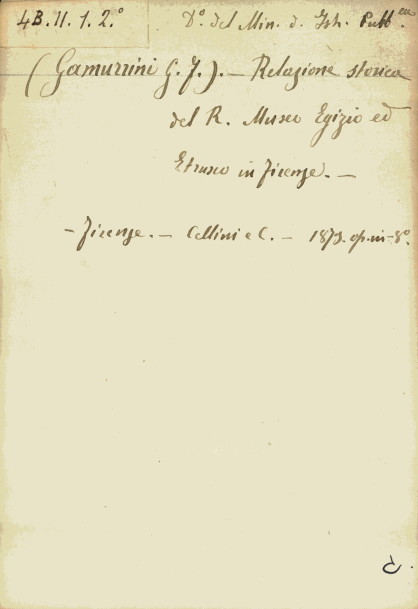 4B. 11. 1. 2.° D.° del Min. d. Ist. Pubb.ca
(Gamurrini G. F.). — Relazione storica
del R. Museo Egizio ed
Etrusco in Firenze. —
— Firenze. — Cellini e C. — 1873. op. in-8°.